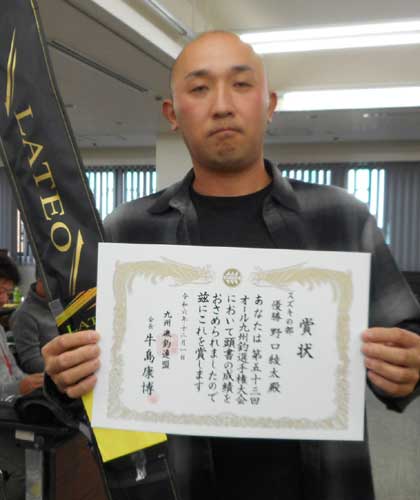 LATEO
賞状
スズキの部
優勝 野口綾太殿
あなたは第五十三回
オール九州釣選手権大会
において頭書の成績を
おさめられましたので
茲にこれを賞します
令和六年十二月一日
九州磯釣連盟
会長 牛島康博